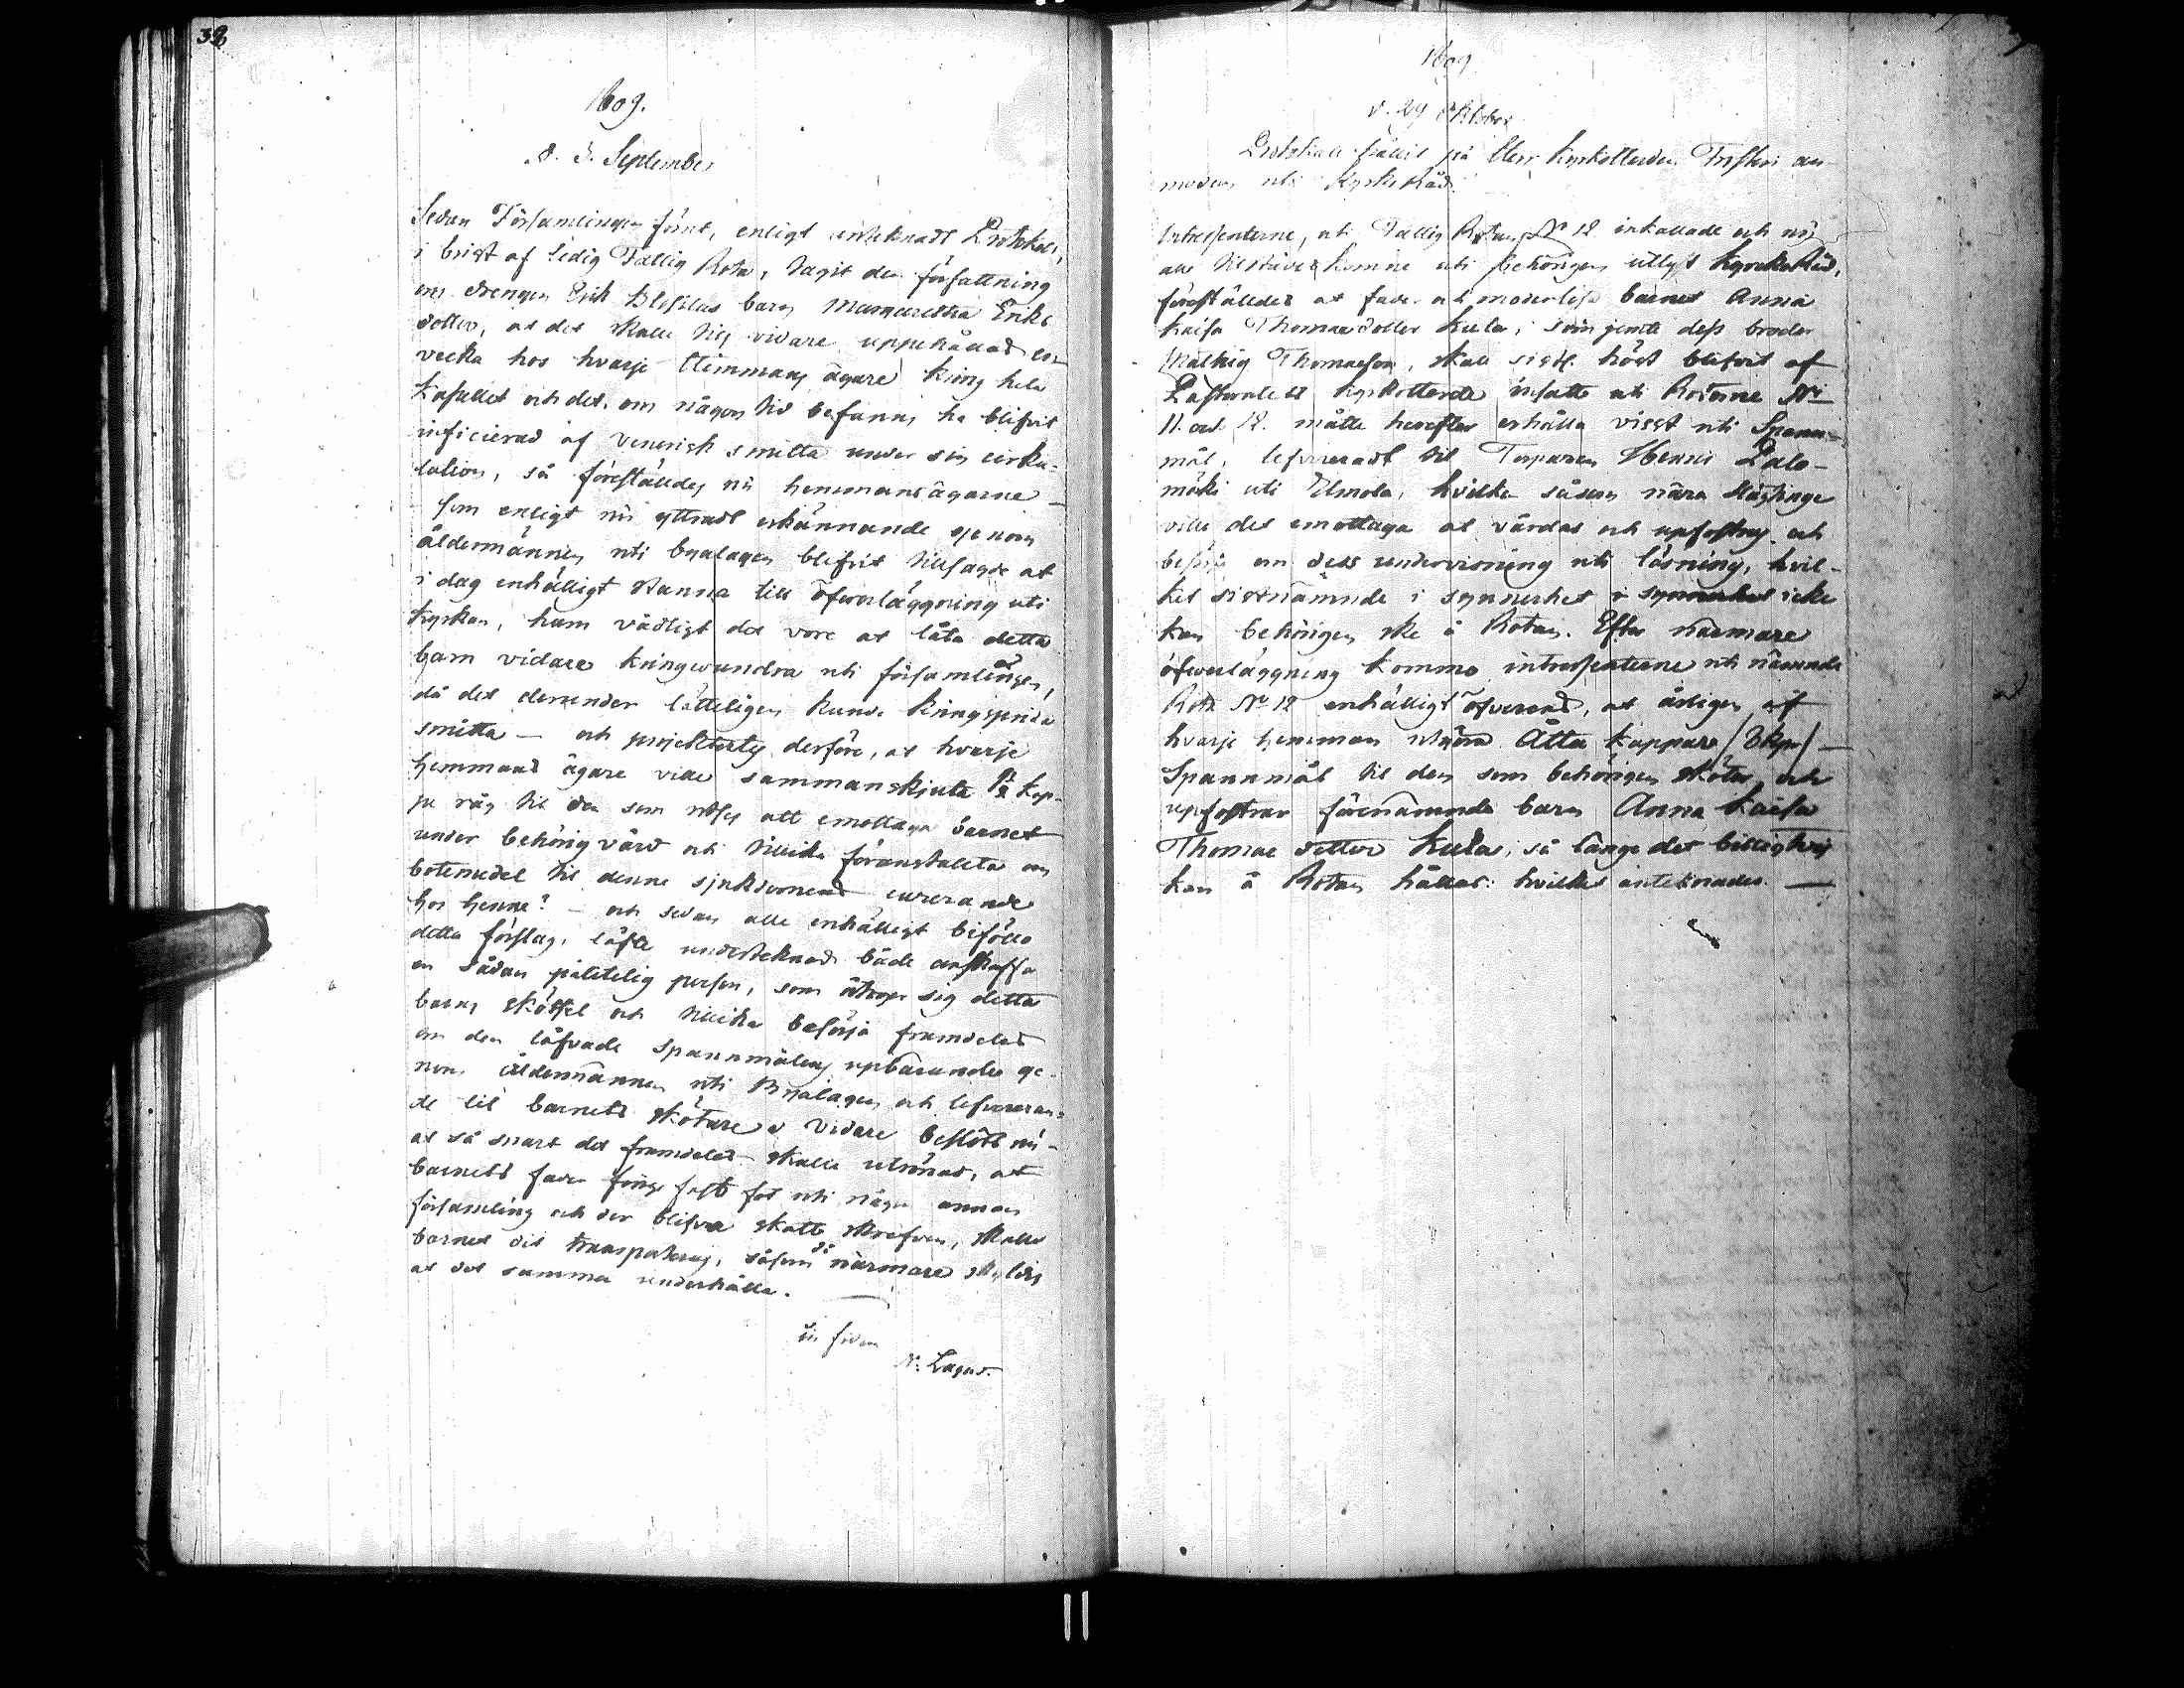 38
1809.
d. 3. September
Sedan Församlingen förut, enligt anteknadt Protokoll,
i brist af ledig Fattig Rota, tagit den författning
om drengen Erik barn Margaretha Eriks
dotter, at det skulle vidare uppehållas en
vecka hos hvarje Hemmans ägare kring hela
Kapellet och det, om någon tid befanns ha blifvit
inficierad af venerisk smitta under sin cirku-
lation, så föreställdes nu hemmansägarne
som enligt nu yttradt erkännande genom
åldermännen uti byalagen blifvit tillsagde at
i dag enhälligt stanna till öfverläggning uti
Kyrkan, huru vådligt det vore at låta detta
barn vidare kringvandra uti församlingen,
då det derunder lätteligen kunde kringsprida
smitta — och derföre, at hvarje
hemmans ägare ville sammanskjuta ½ kap-
pe råg til den som att emottaga barnet
under behörig vård och tillika föranstalta om
botemedel til denne sjukdomens curerande
hos henne? — och sedan alle enhälligt biföllo
detta förslag, låfte undertecknad både anskaffa
en sådan pålitelig person, som åtoge sig detta
barns skötsel och tillika besörja framdeles
om den låfvade spannmålens upbärande ge-
nom åldermännen uti Byalagen och lefvereran-
de til barnets skötare. Vidare beslöts nu-
at så snart det framdeles skulle utrönas, at
barnets fader finge fast fot uti någon annan
församling och der blifva skatt skrifven, skulle
barnet dit transporteras, såsom då närmare skyldig
at det samma underhålla.
In fidem
N. Lagus.
1809
d. 29 Oktober
Protokoll hållit på Herr Kyrkoherden an-
modan uti KyrkoRåd.
Intressenterne, uti Fattig Rotan No 12 inkallade och nu
alle tilstädes komne uti behörigen utlyst KyrckoRåd,
föreställdes at fader och moderlösa barnet Anna
Kaisa Thomae dotter Kula, som jemte dess broder
Thomaeson, skall sistl. höst blifvit af
Kyrkoherde insatte uti Roterne No
11. och 12. måtte herefter erhålla visst uti Spann-
mål, lefvereradt til Torparen Henric Palo-
mäki uti Elmola, hvilken såsom nära slägtinge
ville det emottaga at vårdas och upfostras och
besörja om dess undervisning uti läsning, hvil-
ket sistnämnde i synnerhet i synnerhet icke
kan behörigen ske å Rotan. Efter närmare
öfverläggning kommo intressenterne uti nämnde
Rota No 12 enhälligt öfverens, at årligen af
hvarje hemman utgöra Åtta kappar /8 kpr/ —
Spannmål til den som behörigen sköter och
upfostrar förenämnde barn Anna Kaisa
Thomae dotter Kula, så länge det billigtvis
kan å Rotan hållas: hvilket anteknades. —